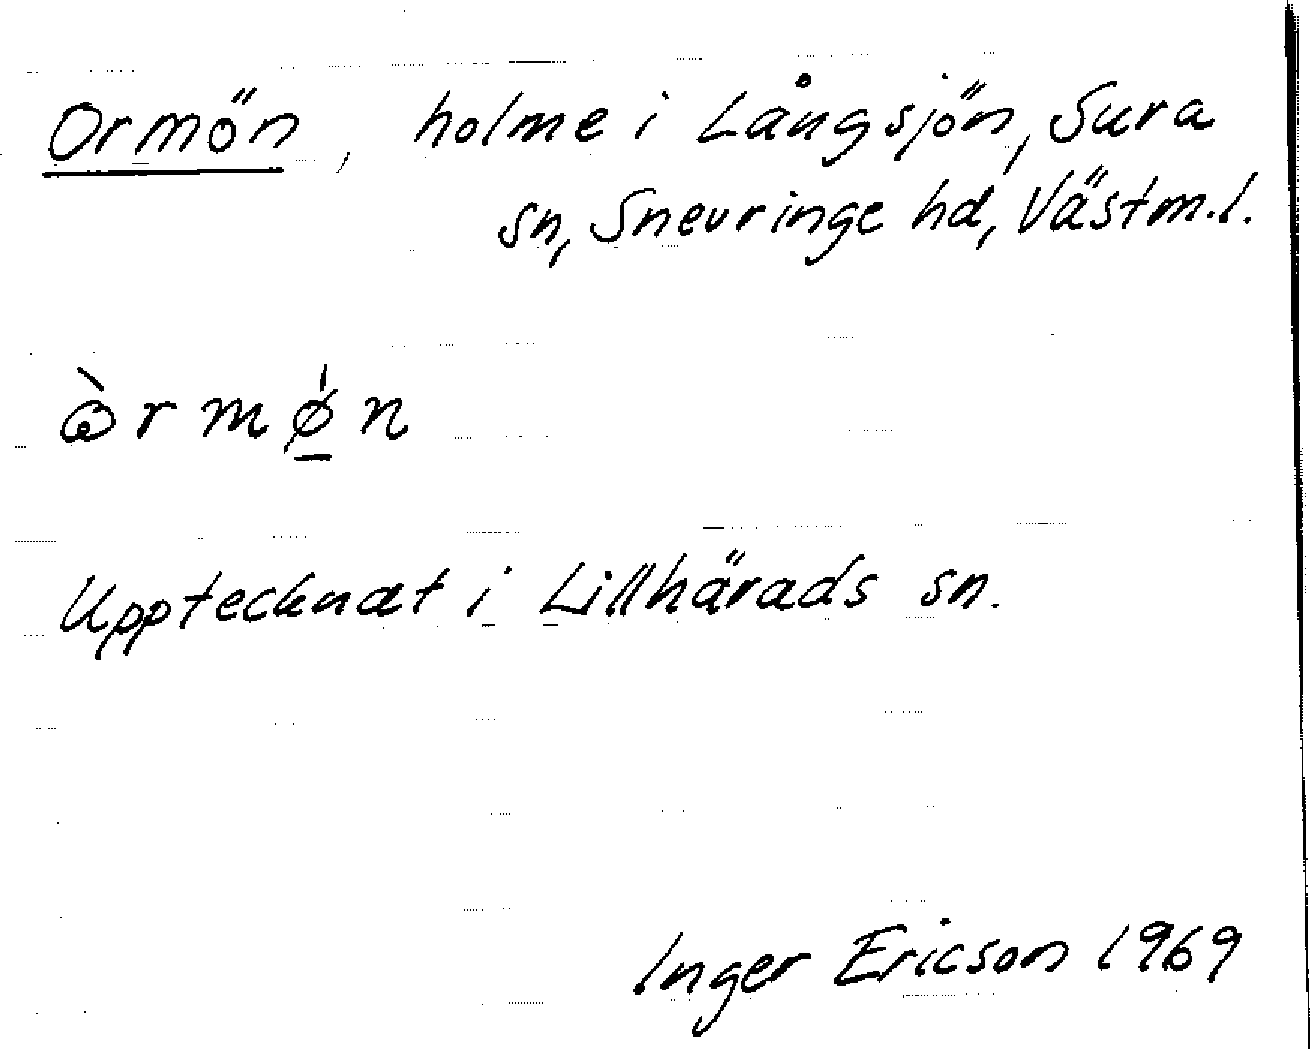 Ormön, holme i Långsjön, Sura
sn, Snevringe hd, Västm.l.
ὼrmǿ̠n
Upptecknat i Lillhärads sn.
Inger Ericson 1969